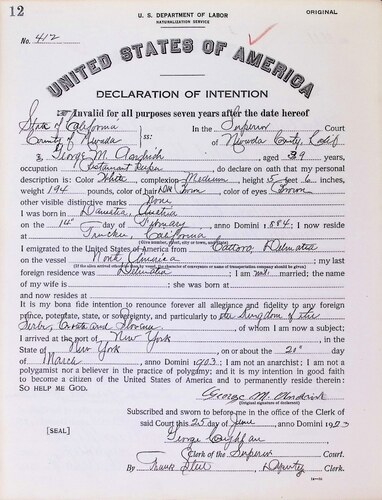 12
U. S. DEPARTMENT OF LABOR
NATURALIZATION SERVICE
ORIGINAL
No. 412
UNITED STATES OF AMERICA
DECLARATION OF INTENTION
Invalid for all purposes seven years after the date hereof
State of California
County of Nevada
ss:
In the Superior Court
of Nevada City, Calif
I, George M. Andrich, aged 39 years,
occupation Restaurant Keeper, do declare on oath that my personal
description is: Color White, complexion Medium, height 5 feet 6 inches,
weight 194 pounds, color of hair Dk Brown, color of eyes Brown
other visible distinctive marks None
I was born in Dalmatia, Austria
on the 14 day of February, anno Domini 1884; I now reside
at Truckee, California
(Give number, street, city or town, and State)
I emigrated to the United States of America from Cattaro Dalmatia
on the vessel North America; my last
(If the alien arrived otherwise than by vessel, the character of conveyance or name of transportation company should be given)
foreign residence was Dalmatia; I am not married; the name
of my wife is; she was born at
and now resides at
It is my bona fide intention to renounce forever all allegiance and fidelity to any foreign
prince, potentate, state, or sovereignty, and particularly to the Kingdom of the
Serbs, Croats and Slovenes, of whom I am now a subject;
I arrived at the port of New York, in the
State of New York, on or about the 21 day
of March, anno Domini 1903; I am not an anarchist; I am not a
polygamist nor a believer in the practice of polygamy; and it is my intention in good faith
to become a citizen of the United States of America and to permanently reside therein:
SO HELP ME GOD.
George M. Andrich
(Original signature of declarant)
Subscribed and sworn to before me in the office of the Clerk of
[SEAL]
said Court this 25 day of June, anno Domini 19 3
George
Clerk of the Superior Court.
By Frank Steel, Deputy Clerk.